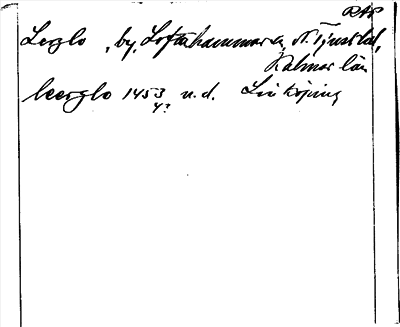 RAP
Lerglo, by, Loftahammar sn, N. Tjust hd,
Kalmar län
leerglo 1453 u.d. Linköping
4?